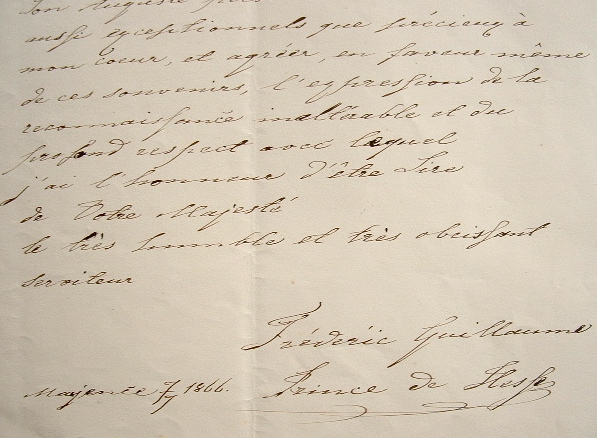 son Auguste
aussi exceptionnels que précieux à
mon coeur, et agréer, en faveur même
de ces souvenirs, l'expression de la
reconnaissance inaltérable et du
profond respect avec lequel
j'ai l'honneur d'être Sire
de Votre Majesté
le très humble et très obeissant
serviteur
Fréderic Guillaume
Mayence, 7/7 1866. Prince de Hesse